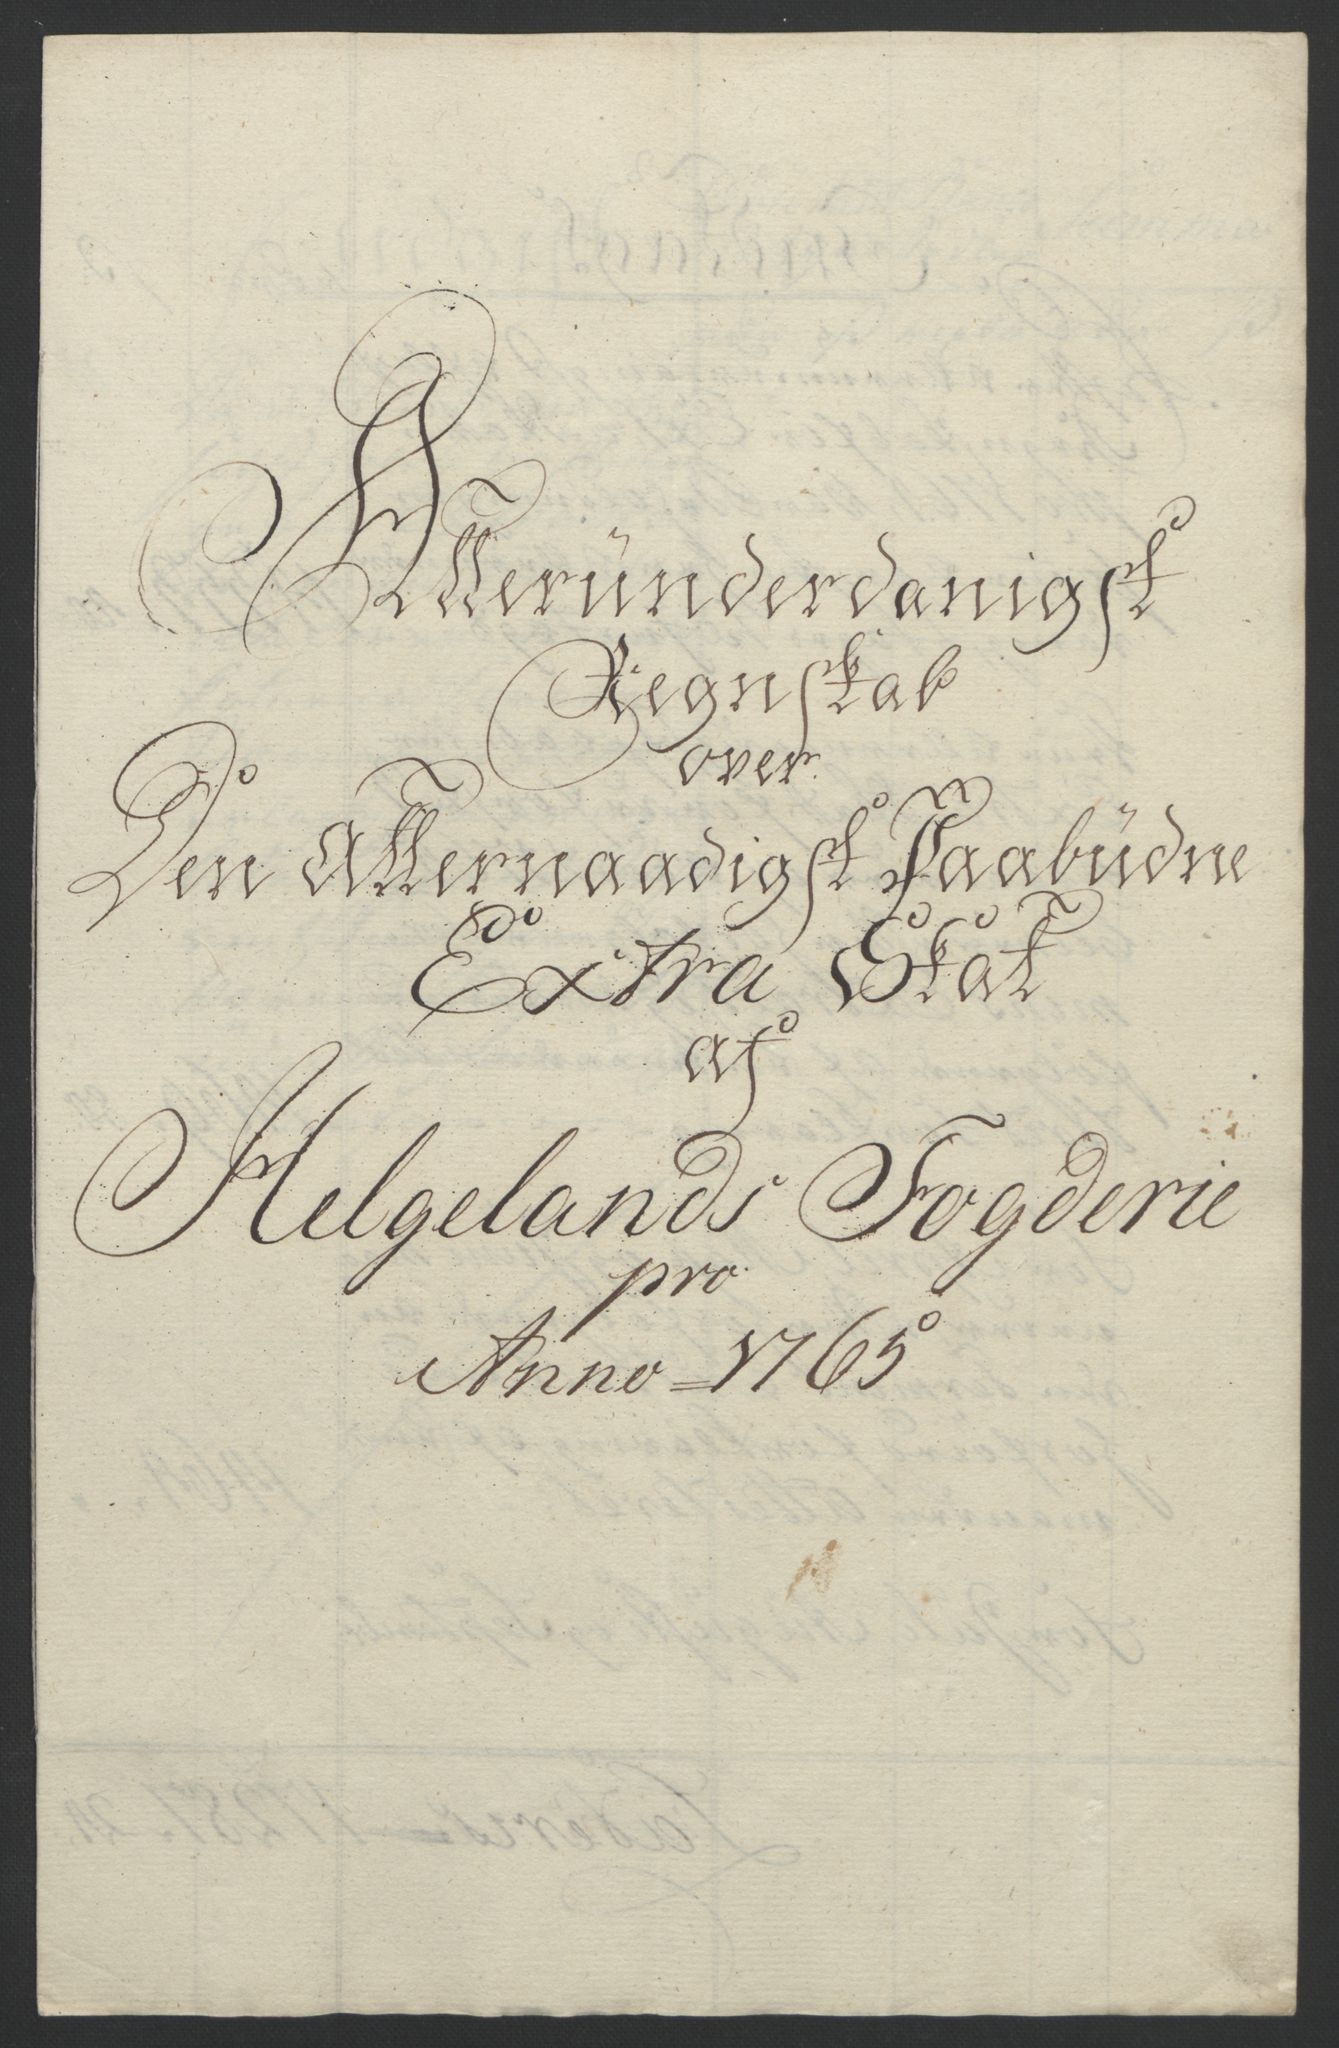 Alleründerdanigst
Regnskab
over
Den Allernaadigst Paabüdne
Extra Skat
af
Helgelands Fogderie
pro
Anno 1765